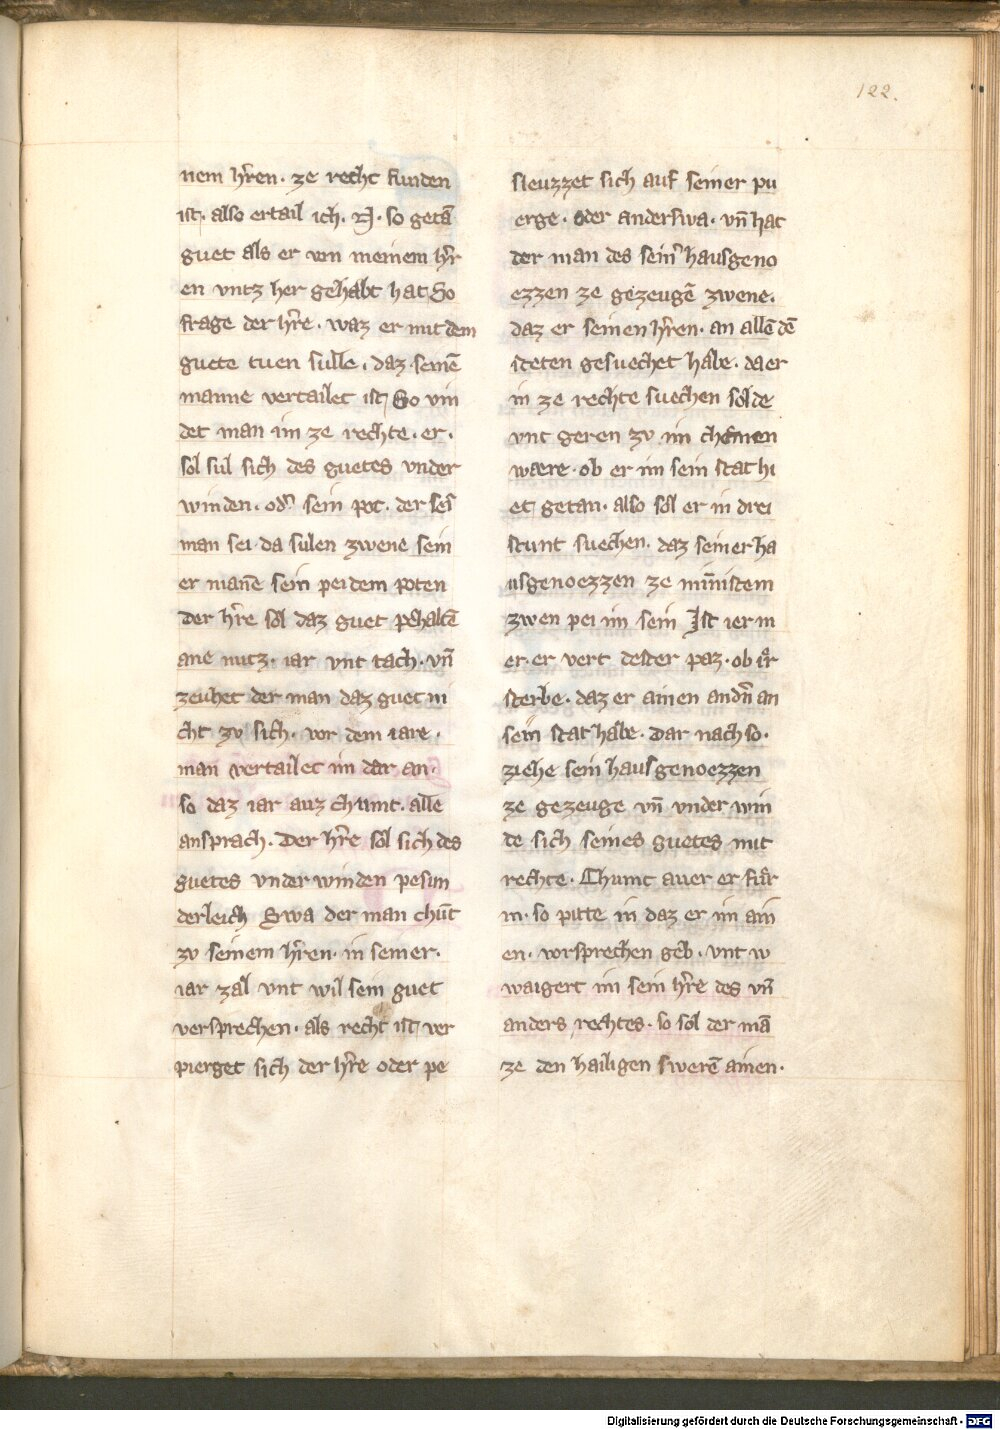 122.
nem hr̄en · ze recht funden
ist · also ertail ich · N · so getā
guet als er von meinem hr̄
en vntz her gehabt hat So
frage der hr̄e · waz er mit dem
guete tuen sulle · daz seinē
manne vertailet ist So vin
det man im ze rechte · er ·
sol sul sich des guetes vnder
winden · od̾ sein pot · der sei
man sei · da sulen zwene sein
er man̄e sein pei dem poten
Der hr̄e sol daz guet pehaltē
ane nutz · iar vnt tach · vn̄
zeuhet der man daz guet ni
cht zv sich · vor dem iare ·
man vertailet im dar an ·
so daz iar auz chumt · alle
ansprach · Der hr̄e sol sich des
guetes vnder winden pesun
derleich Swa der man chūt
zv seinem hr̄en · in seiner ·
iar zal vnt wil sein guet
versprechen · als recht ist ver
pierget sich der hr̄e oder pe
sleuzzet sich auf seiner pu
erge · oder anderswa · vn̄ hat
der man des sein̾ hausgeno
ezzen ze gezeugē zwene ·
daz er seinen hr̄en · an allē dē
steten gesuechet habe · da er
in ze rechte suechen solde
vnt geren zv im chemen
waere · ob er im sein stat hi
et getan · also sol er in drei
stunt suechen · daz seiner ha
usgenoezzen ze min̄istem
zwen pei im sein Ist ier m
er · er vert dester paz · ob ir̾
sterbe · daz er ainen andn̄ an
sein stat habe · Dar nach so ·
ziehe sein hausgenoezzen
ze gezeuge vn̄ vnder win
de sich seines guetes mit
rechte · Chumt auer er für
in · so pitte in daz er im ain
en · vorsprechen geb · vnt w
waigert im sein hr̄e des vn̄
anders rechtes · so sol der mā
ze den hailigen swerē ainen ·
Digitalisierung gefördert durch die Deutsche Forschungsgemeinschaft - DFG